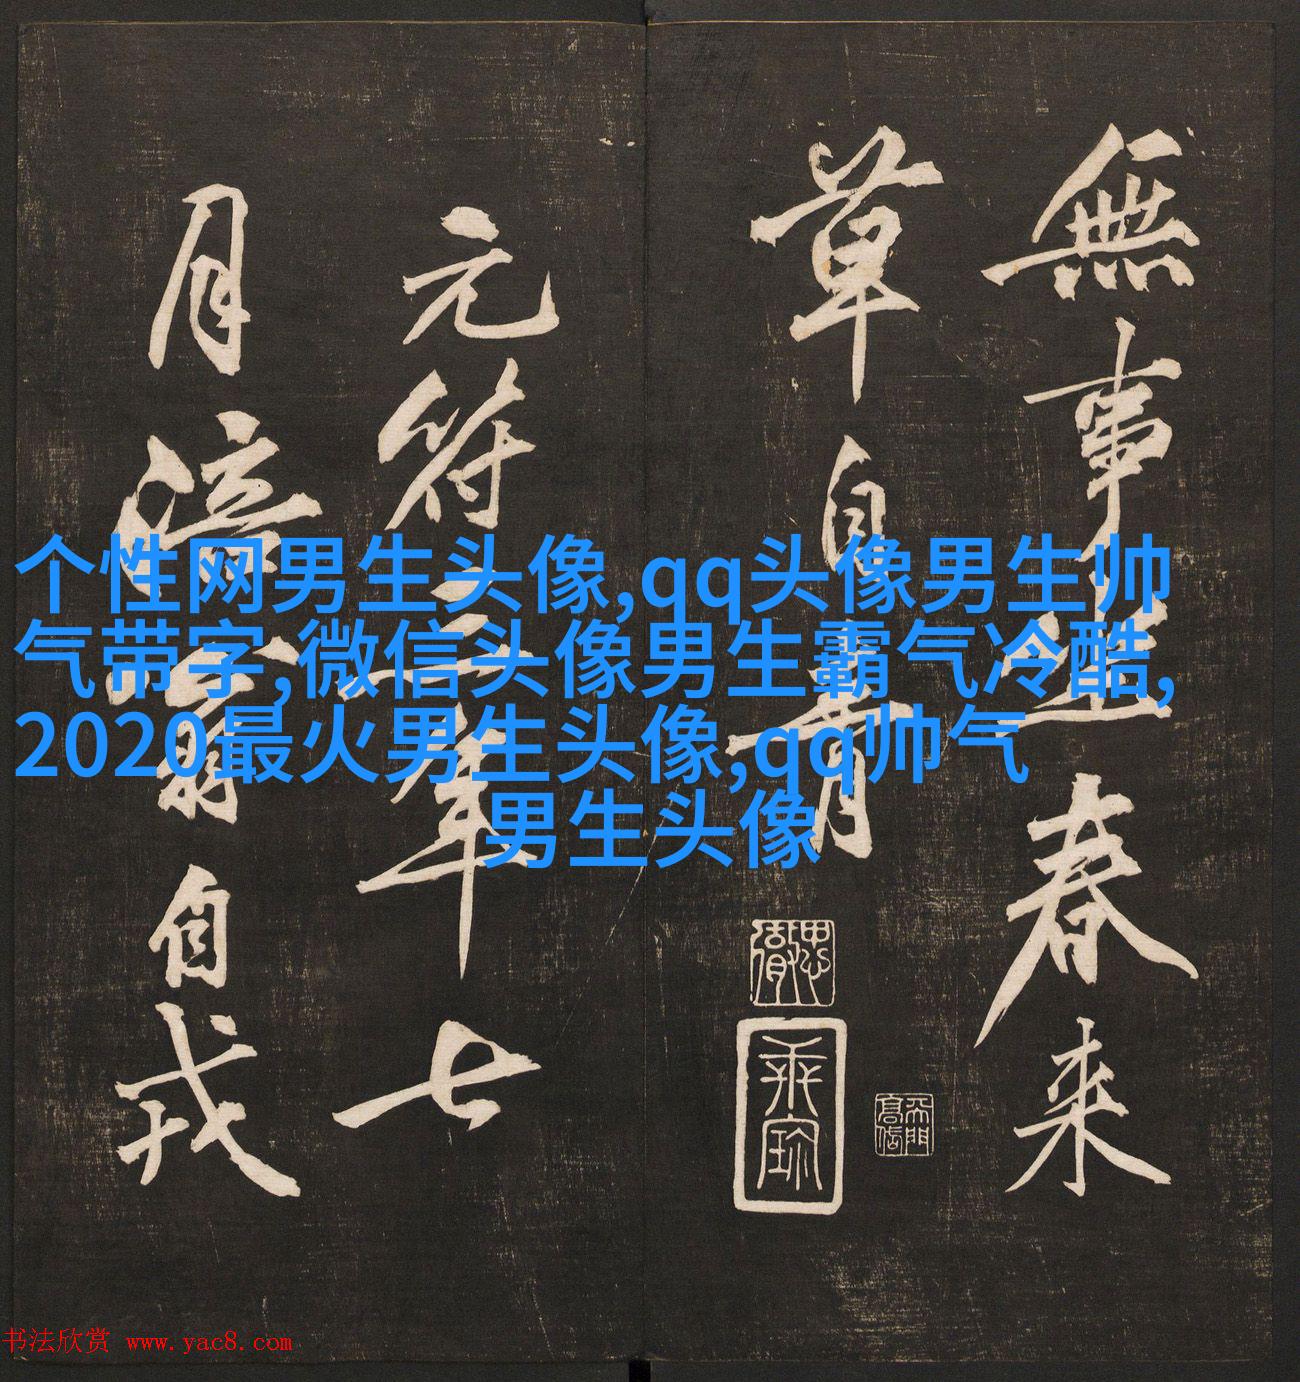 無事坐春来
草自青
元符三年七
月涪翁自戎
个性网男生头像,qq头像男生帅
气带字,微信头像男生霸气冷酷,
2020最火男生头像,qq帅气
男生头像
书法欣赏 www.yac8.com